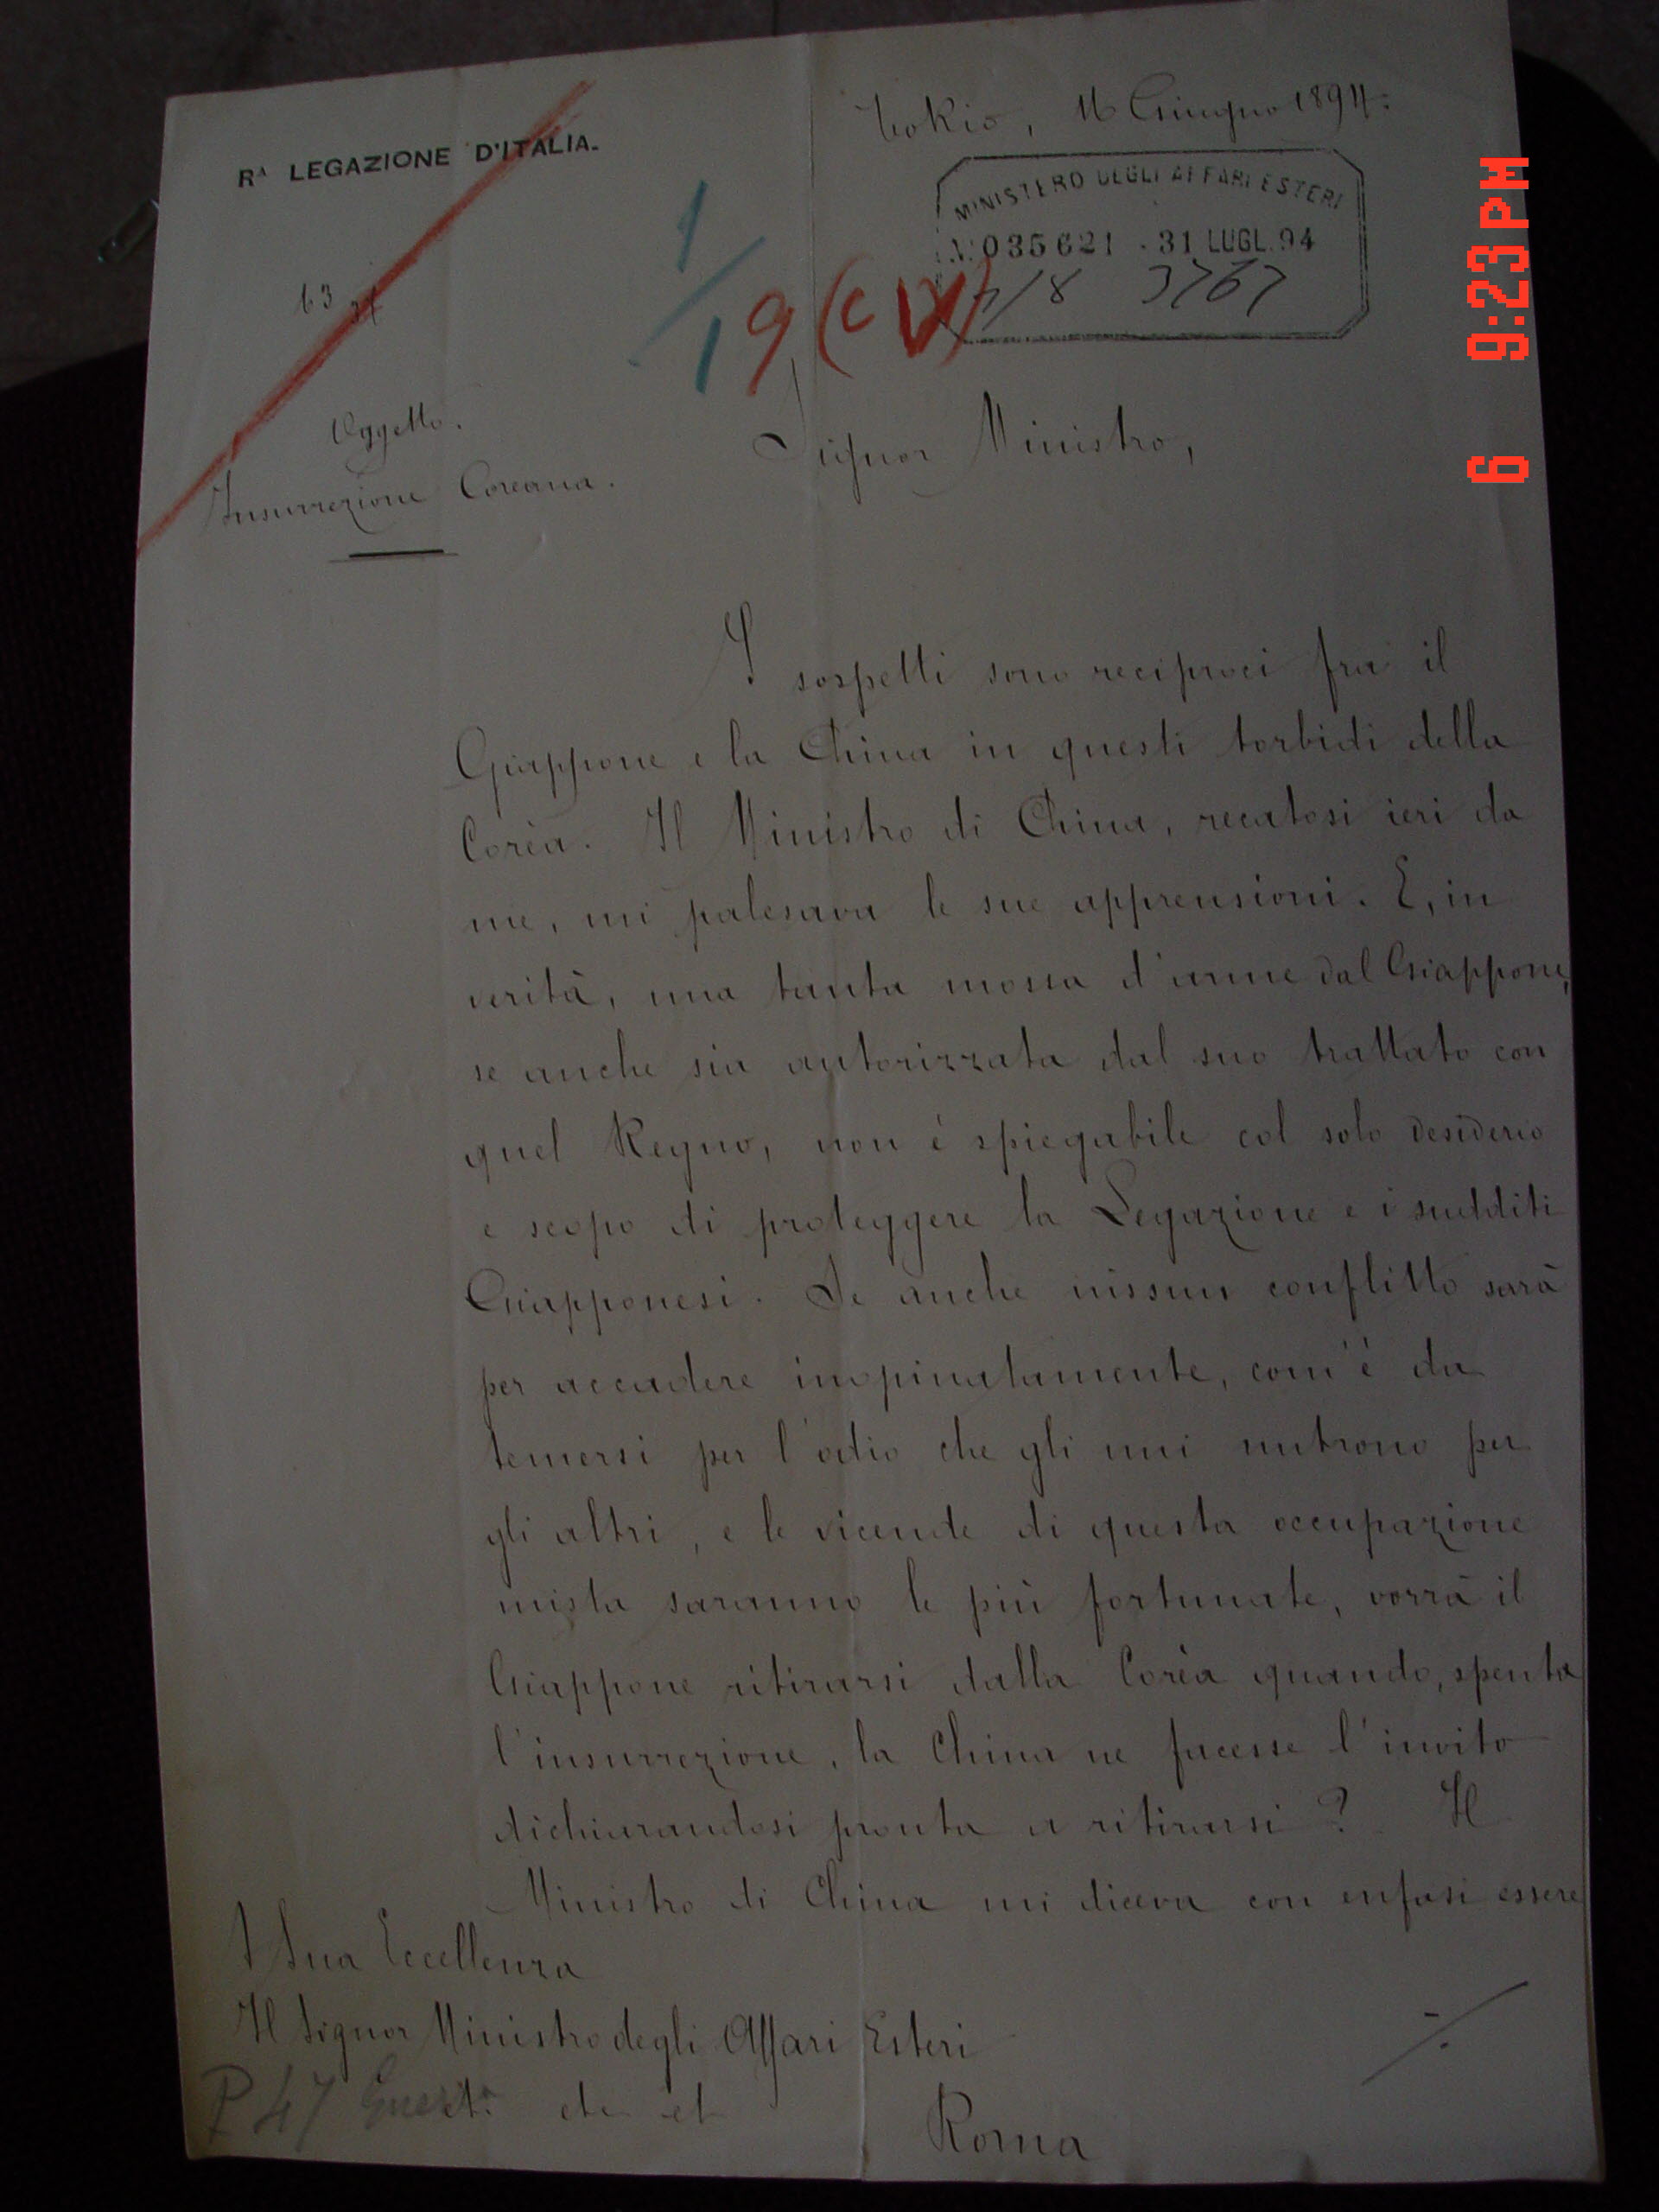 Tokio, 16 Giugno 1894.
Rᴬ LEGAZIONE D'ITALIA.
MINISTERO DEGLI AFFARI ESTERI
N. 035621 . 31 LUGL. 94
3767
63
1/19 (C IV)
Oggetto.
Insurrezione Coreana.
Signor Ministro,
I sospetti sono reciproci fra il
Giappone e la China in questi torbidi della
Corèa. Il Ministro di China, recatosi ieri da
me, mi palesava le sue apprensioni. E, in
verità, una tanta mossa d'arme dal Giappone,
se anche sia autorizzata dal suo trattato con
quel Regno, non è spiegabile col solo desiderio
e scopo di proteggere la Legazione e i sudditi
Giapponesi. Se anche nissun conflitto sarà
per accadere inopinatamente, com'è da
temersi per l'odio che gli uni nutrono per
gli altri, e le vicende di questa occupazione
mista saranno le più fortunate, vorrà il
Giappone ritirarsi dalla Corèa quando, spenta
l'insurrezione, la China ne facesse l'invito
dichiarandosi pronta a ritirarsi? Il
Ministro di China mi diceva con enfasi essere
A Sua Eccellenza
Il Signor Ministro degli Affari Esteri
etc et
Roma
P 47
6 9:23 PM